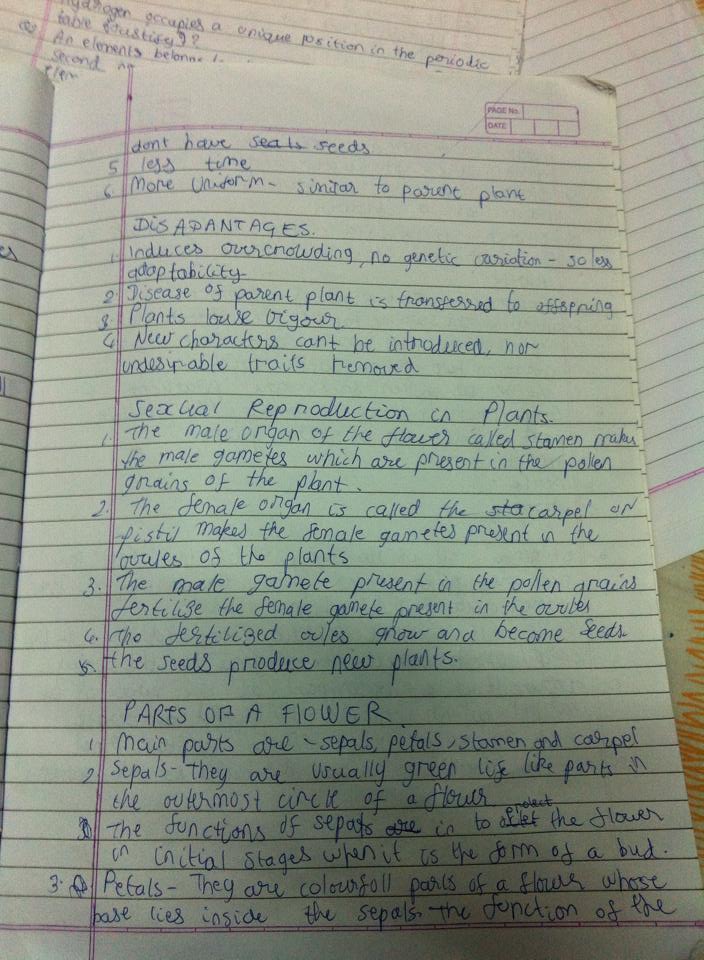 hydrogen occupies a unique position in the periodic
table (Justify)?
An elements
second
dont have seats seeds
PAGE No.
DATE
5 less time
6. More Uniform - similar to parent plant
DISADANTAGES.
1. Induces overcrowding, no genetic variation - so less
adaptability
2. Disease of parent plant is transferred to offspring
3. Plants louse vigour
4. New characters cant be introduced, nor
undesirable traits removed
Sexual Reproduction in Plants.
1. the male organ of the flower called stamen makes
the male gametes which are present in the pollen
grains of the plant.
2. the female organ is called the sta carpel or
pistil makes the female gametes present in the
ovules of the plants
3. The male gamete present in the pollen grains
fertilise the female gamete present in the ovules
4. the fertilized ovles grow and become seeds.
5. the seeds produce new plants.
PARTS OF A FLOWER
1 Main parts are - sepals, petals, stamen and carpel
2 Sepals - they are usually green life like parts in
the outermost circle of a flower
the functions of sepals are in to protect the flower
in initial stages when it is the form of a bud.
3. Petals - They are colourfull parts of a flower whose
base lies inside the sepals the function of the